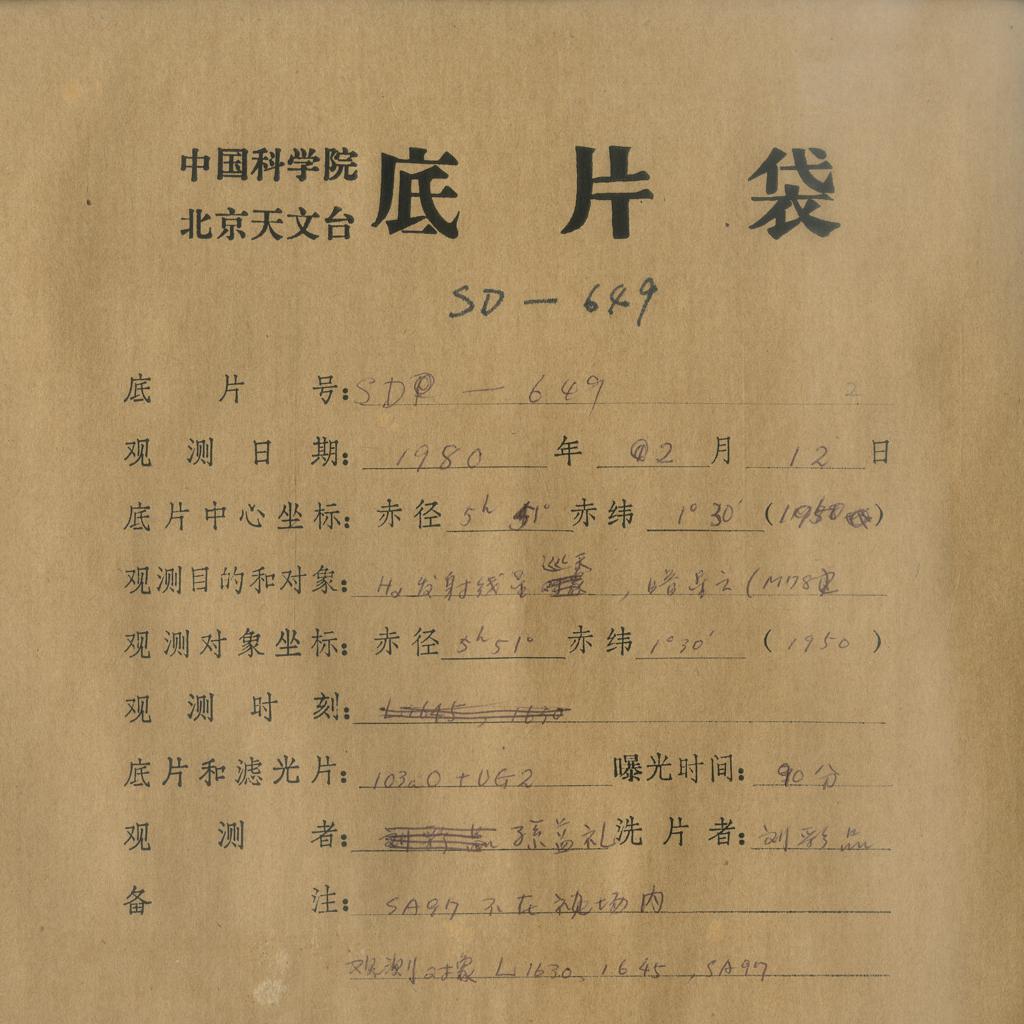 中国科学院
北京天文台
底片袋
SD-649
底片号：SD - 649 2
观测日期：1980年02月12日
底片中心坐标：赤径 5h 51° 赤纬 1°30′ (1950)
观测目的和对象：Hα发射线星巡天，暗星云(M78
观测对象坐标：赤径 5h51° 赤纬 1°30′ (1950)
观测时刻：L1645，1630
底片和滤光片：103aO+UG2 曝光时间：90分
观测者：刘彩品 孫益礼 洗片者：刘彩品
备注：SA97不在视场内
观测对象 L1630、1645，SA97